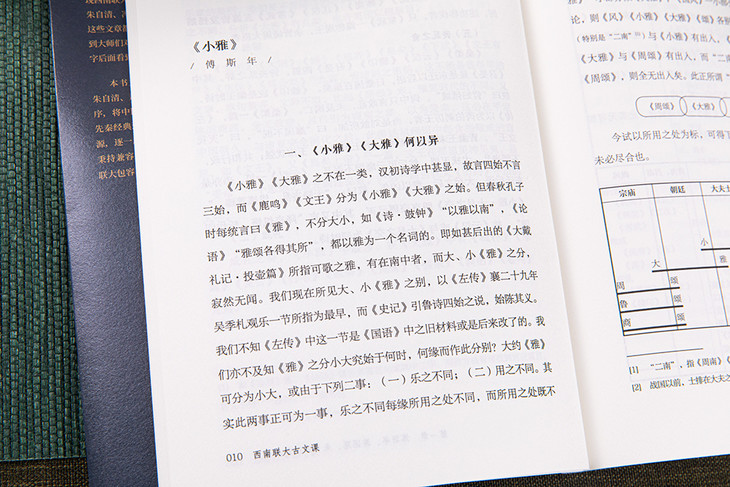 朱自清、
这些文章
到大师们
字后面看
本书
朱自清、
序，将中
先秦经典
源。逐一
秉持兼容
联大包容
《小雅》
/ 傅 斯 年 /
一、《小雅》《大雅》何以异
《小雅》《大雅》之不在一类，汉初诗学中甚显，故言四始不言
三始，而《鹿鸣》《文王》分为《小雅》《大雅》之始。但春秋孔子
时每统言曰《雅》，不分大小，如《诗·鼓钟》“以雅以南”，《论
语》“雅颂各得其所”，都以雅为一个名词的。即如甚后出的《大戴
礼记·投壶篇》所指可歌之雅，有在南中者，而大、小《雅》之分，
寂然无闻。我们现在所见大、小《雅》之别，以《左传》襄二十九年
吴季札观乐一节所指为最早，而《史记》引鲁诗四始之说，始陈其义。
我们不知《左传》中这一节是《国语》中之旧材料或是后来改了的。我
们亦不及知《雅》之分小大究始于何时，何缘而作此分别？大约《雅》
可分为小大，或由于下列二事：（一）乐之不同；（二）用之不同。其
实此两事正可为一事，乐之不同每缘所用之处不同，而所用之处既不
010 西南联大古文课
论，则《风》《小雅》《大雅》《颂》各
（特别是“二南”[1]）与《小雅》有出入，《
《大雅》与《周颂》有出入，而“二
《周颂》，则全无出入矣。此正所谓“
《周颂》 《大雅》
今试以所用之处为标，可得下
未必尽合也。
宗庙 朝廷 大夫士
小
大 雅
周 颂
鲁 颂
商 颂
[1] “二南”，指《周南》《
[2] 战国以前，士排在大夫之